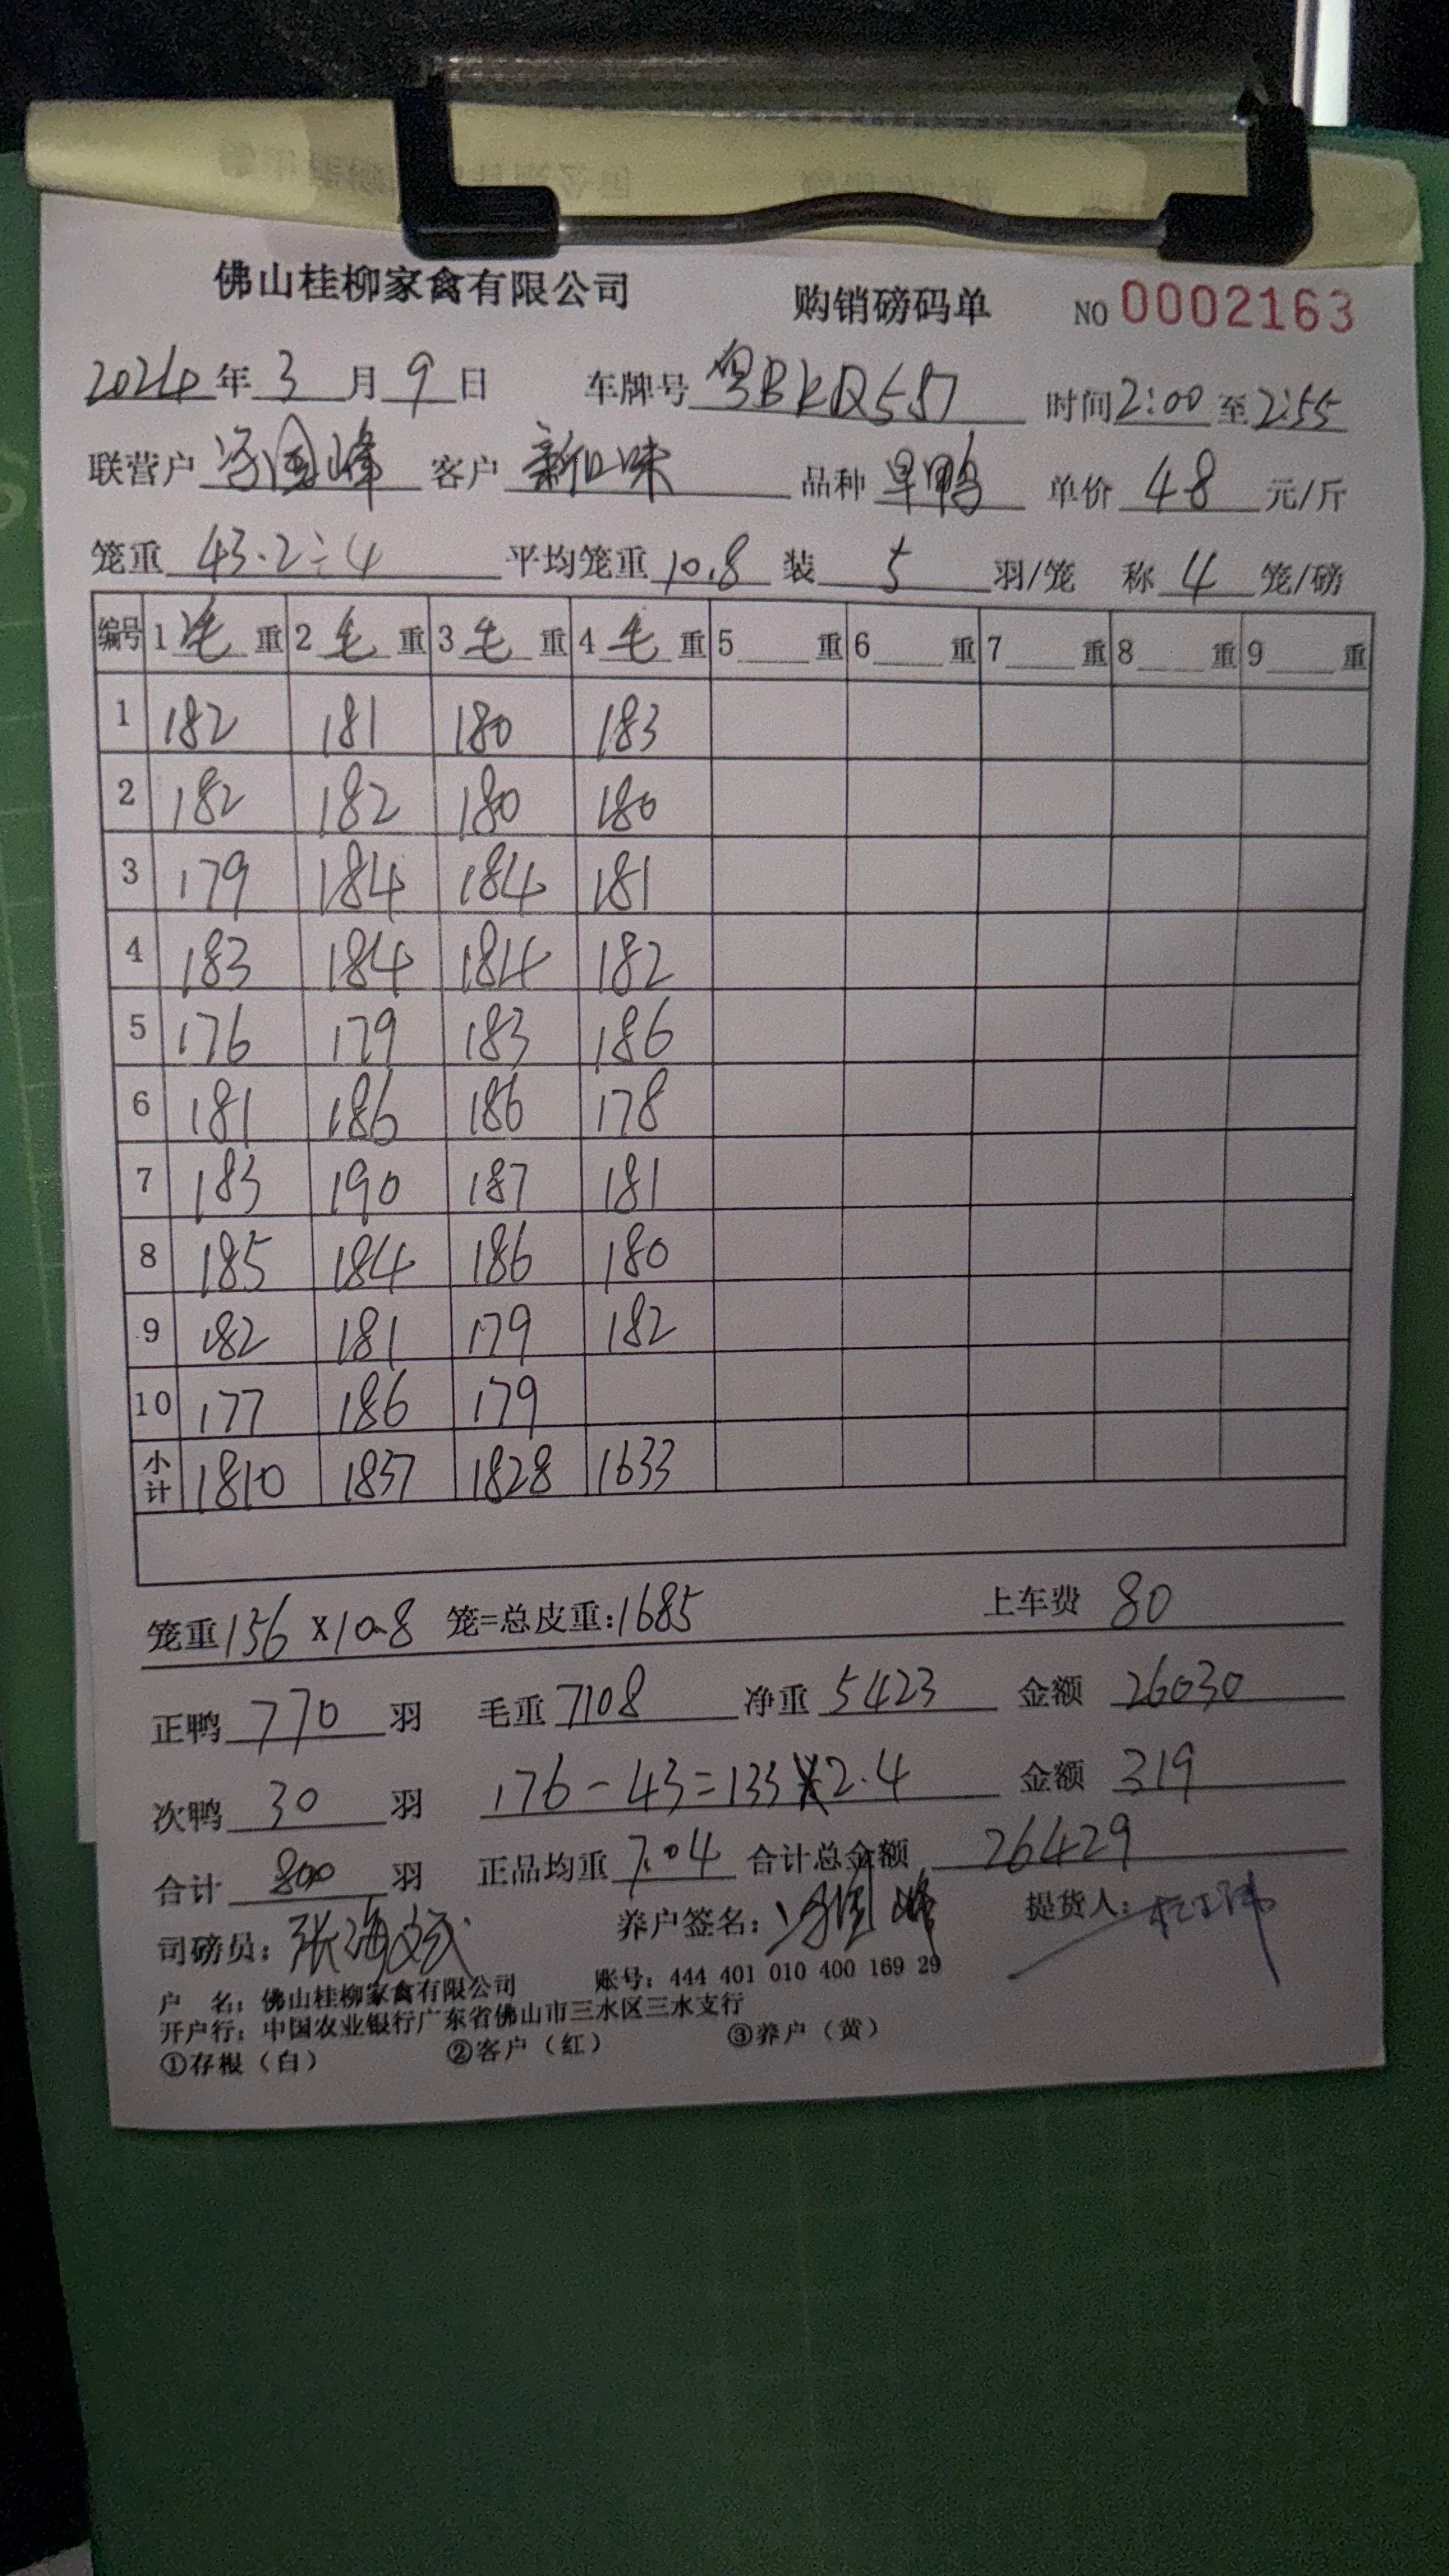 佛山桂柳家禽有限公司 购销磅码单 NO 0002163
2024年3月9日 车牌号 粤BKQ557 时间2:00至2:55
联营户 冯国峰 客户 新口味 品种 旱鸭 单价 48 元/斤
笼重 43.2÷4 平均笼重 10.8 装 5 羽/笼 称 4 笼/磅
编号 1毛重 2毛重 3毛重 4毛重 5 重 6 重 7 重 8 重 9 重
1 182 181 180 183
2 182 182 180 180
3 179 184 184 181
4 183 184 184 182
5 176 179 183 186
6 181 186 186 178
7 183 190 187 181
8 185 184 186 180
9 182 181 179 182
10 177 186 179
小计 1810 1837 1828 1633
笼重156 X10.8 笼=总皮重:1685 上车费 80
正鸭 770 羽 毛重 7108 净重 5423 金额 26030
次鸭 30 羽 176-43=133×2.4 金额 319
合计 800 羽 正品均重 7.04 合计总金额 26429
司磅员: 张海 养户签名: 冯国峰 提货人:
户 名: 佛山桂柳家禽有限公司 账号: 444 401 010 400 169 29
开户行: 中国农业银行广东省佛山市三水区三水支行
①存根(白) ②客户(红) ③养户(黄)